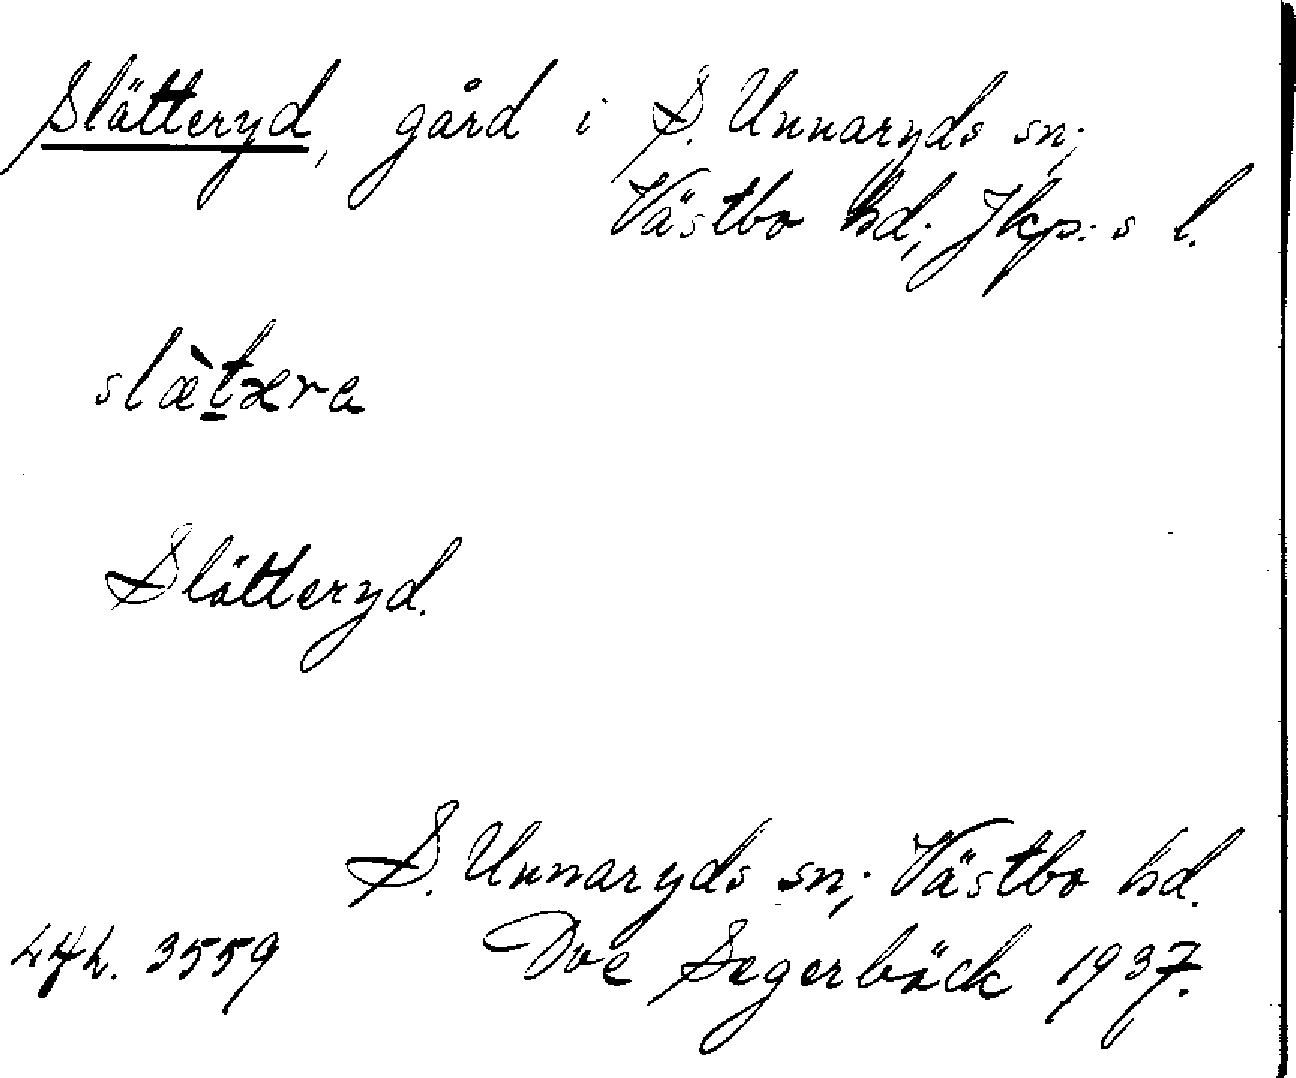 Slätteryd, gård i S. Unnaryds sn;
Västbo hd; Jkp:s l.
slæ̀tæra
Slätteryd.
S. Unnaryds sn; Västbo hd.
3559 Segerbäck 1937.